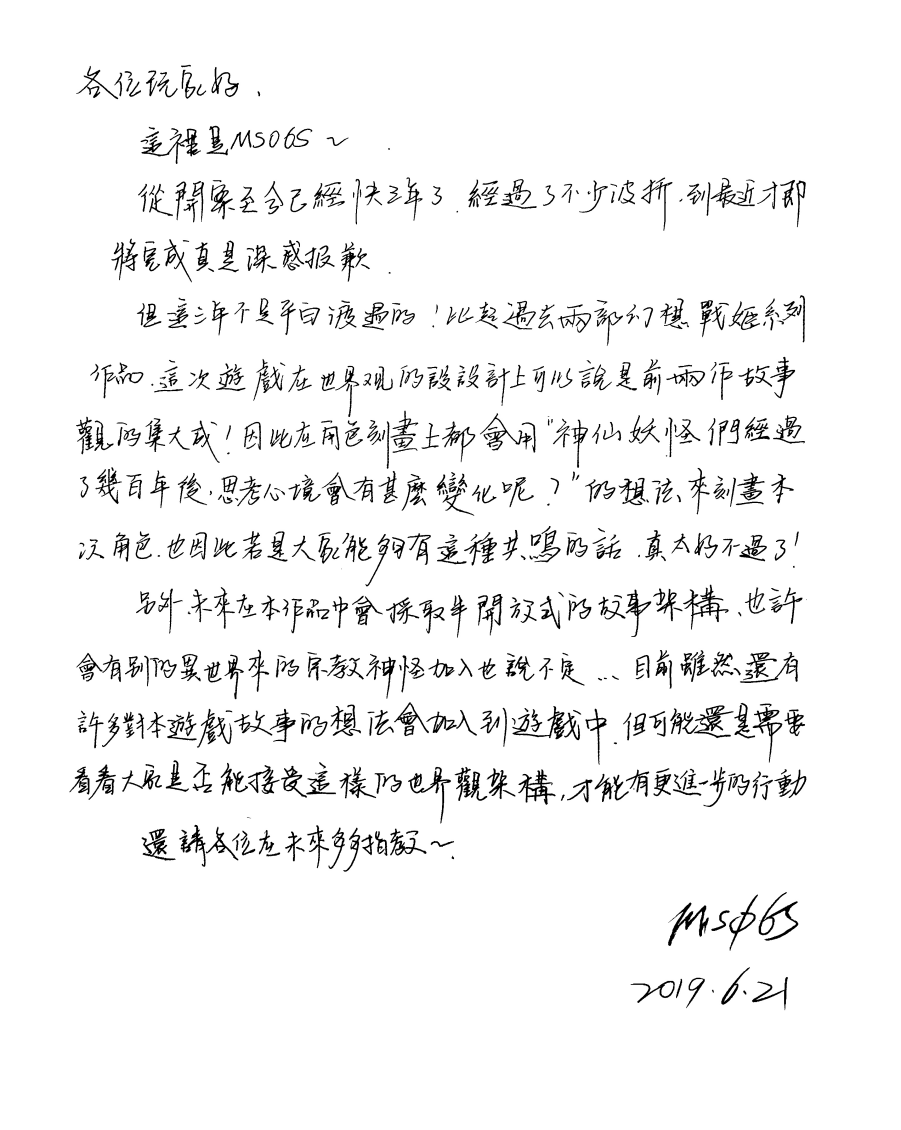 各位玩家好、
這裡是MS06S～
從開案至今已經快三年了.經過了不少波折.到最近才即
將完成真是深感抱歉.
但這三年不是平白渡過的！比起過去兩部幻想戰姬系列
作品.這次遊戲在世界观的設設計上可以說是前兩作故事
觀的集大成！因此在角色刻畫上都會用"神仙妖怪們經過
了幾百年後,思考心境會有甚麼變化呢？"的想法來刻畫本
次角色.也因此若是大家能夠有這種共鳴的話.真太好不過了!
另外.未來在本作品中會採取半開放式的故事架構、也許
會有別的異世界來的宗教神怪加入也說不定...目前雖然還有
許多對本遊戲故事的想法會加入到遊戲中.但可能還是需要
看看大家是否能接受這樣的世界觀架構,才能有更進一步的行動
還請各位在未來多多指教～.
MSφ6S
2019.6.21